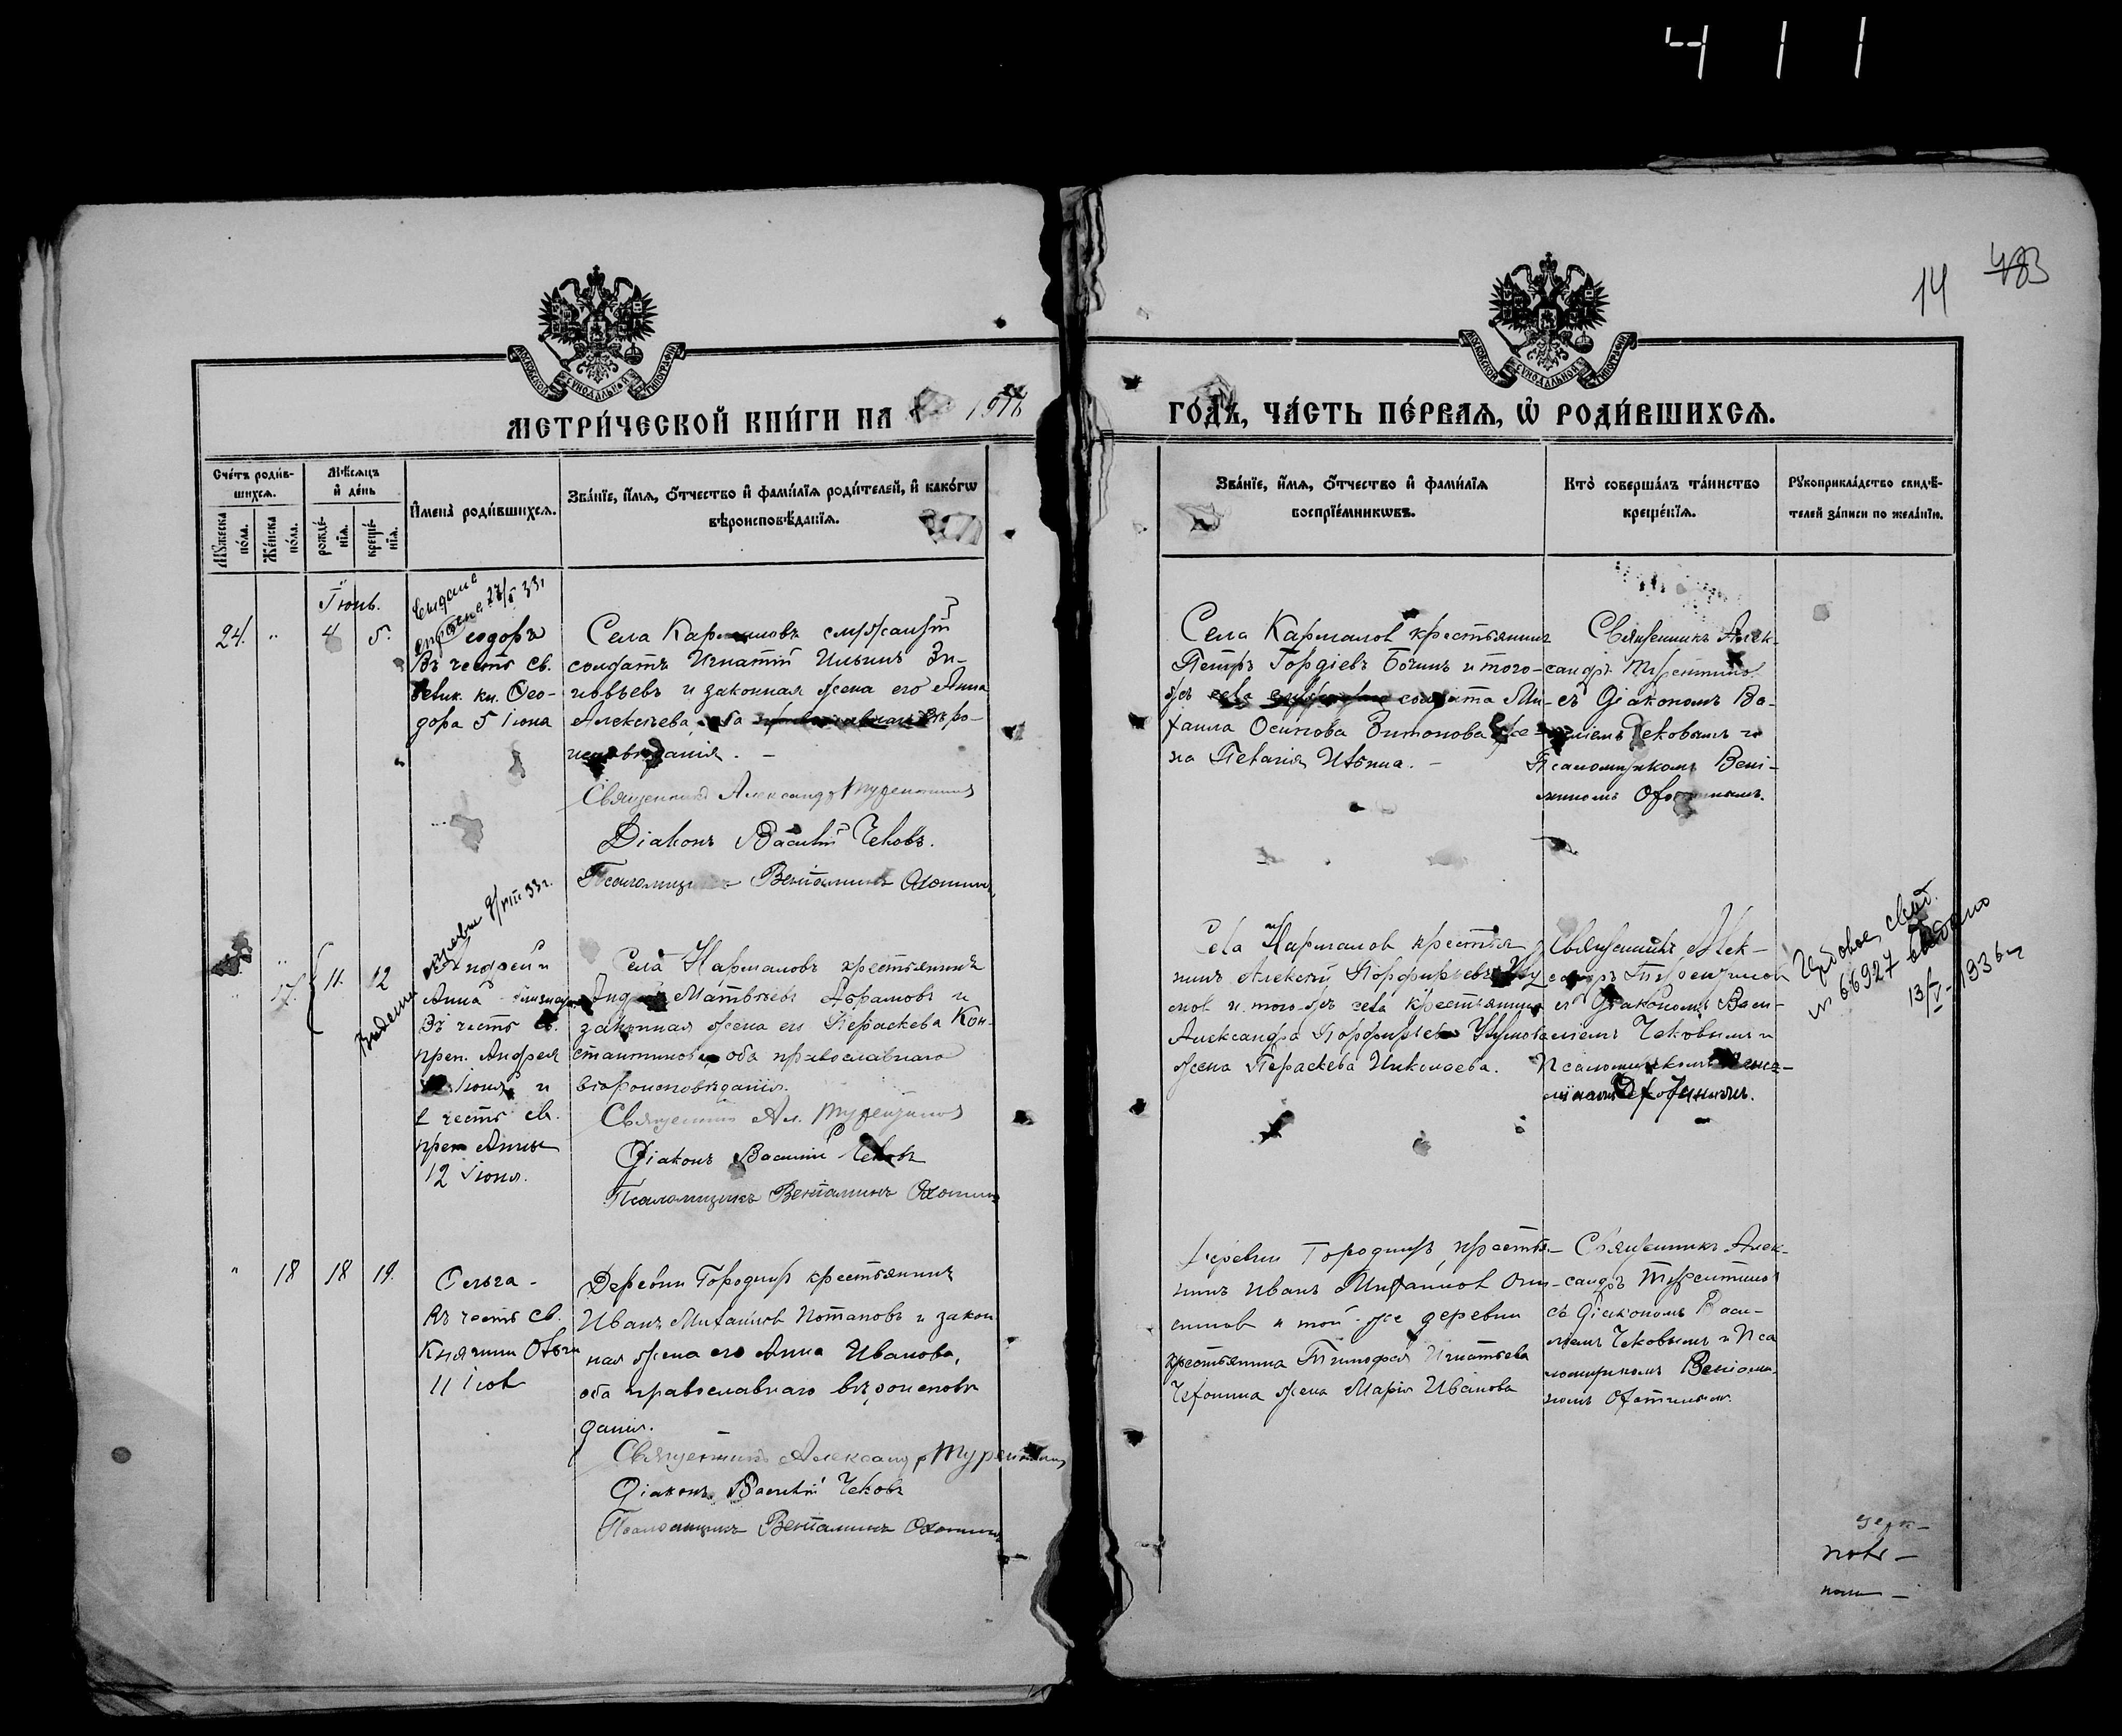 411
14 483
МОСКОВСКОЙ СѴНОДАЛЬНОЙ ТИПОГРАФІИ
МОСКОВСКОЙ СѴНОДАЛЬНОЙ ТИПОГРАФІИ
МЕТРИ́ЧЕСКОЙ КНИ́ГИ НА
ГО́ДЪ, ЧА́СТЬ ПЕ́РВАЯ, Ѡ҆ РОДИ́ВШИХСЯ.
Сче́тъ роди́в-
шихся.
Мѣ́сяцъ
и҆ де́нь
Мꙋ́жеска
по́ла.
Же́нска
по́ла.
рожде́-
нїя.
креще́-
нїя.
И҆мена̀ роди́вшихся.
Зва́нїе, и҆́мя, ѻ҆́тчество и҆ фами́лїя роди́телей, и҆ како́гѡ
вѣроисповѣ́данїя.
Зва́нїе, и҆́мя, ѻ҆́тчество и҆ фами́лїя
воспрїе́мникѡвъ.
Кто̀ соверша́лъ та́инство
креще́нїя.
Рꙋкоприкла́дство свидѣ́-
телей за́писи по жела́нїю.
Іюнь.
24. " 4 5.
Ѳеодоръ
Въ честь св.
велик. кн. Ѳео-
дора 5 Іюна
Села Кармановъ служащій
солдатъ Игнатій Ильинъ Зи-
новьевъ и законная жена его Анна
Алексѣева, оба вѣро-
исповѣданія. –
Священникъ Александр Турентинов
Діаконъ Василій Чековъ.
Псаломщикъ Веніаминъ Охотинъ
Села Карманов крестьянинъ
Петръ Гордіевъ Бочинъ и того-
же солдата Ми-
хаила Осипова Зитонова же-
на Пелагія Ильина. –
Священникъ Алек-
сандръ Турентинов
съ Діакономъ Ва-
силіемъ Чековымъ и
Псаломщикомъ Вені-
аминомъ Охотинымъ.
17. 11. 12
Андрей и
Анна близнецы
Въ честь св.
преп. Андрея
Іюня и
в честь св.
преп Анны
12 Іюня.
Села Кармановъ крестьянинъ
Андрей Матвѣевъ Абрамовъ и
законная жена его Параскева Кон-
стантинова, оба православнаго
вѣроисповѣданія.
Священник Ал. Турентинов
Діаконъ Василій Чековъ
Псаломщикъ Веніаминъ Охотинъ
Села Карманов крестья
нинъ Алексѣй Порфирьевъ
и того-же села крестьянина
Александра Порфирьева
жена Параскева Николаева.
Священникъ Алек-
сандръ Турентинов
съ Діакономъ Васи-
ліемъ Чековымъ и
Псаломщикомъ Вена-
міномъ Охотинымъ.
Гербовое свид.
№ 66927 выдано
13/V-1936 г
" 18 18 19.
Ольга –
Въ честь св.
Княгини Ольги
11 Іюл
Деревни Городищъ крестьянинъ
Иванъ Михайлов Потаповъ и закон
ная жена его Анна Иванова,
оба православнаго вѣроисповѣ
данія.
Священникъ Александр Турентинов
Діаконъ Василій Чековъ
Псаломщикъ Веніаминъ Охотинъ
Деревни Городищъ крестья-
нинъ Иванъ Михайлов
и той-же деревни
крестьянина Тимофея Игнатьева
Чехонина жена Марія Иванова
Священникъ Алек-
сандръ Турентинов
съ Діакономъ Васи-
ліемъ Чековымъ и Пса
ломщикомъ Веніами-
номъ Охотинымъ.